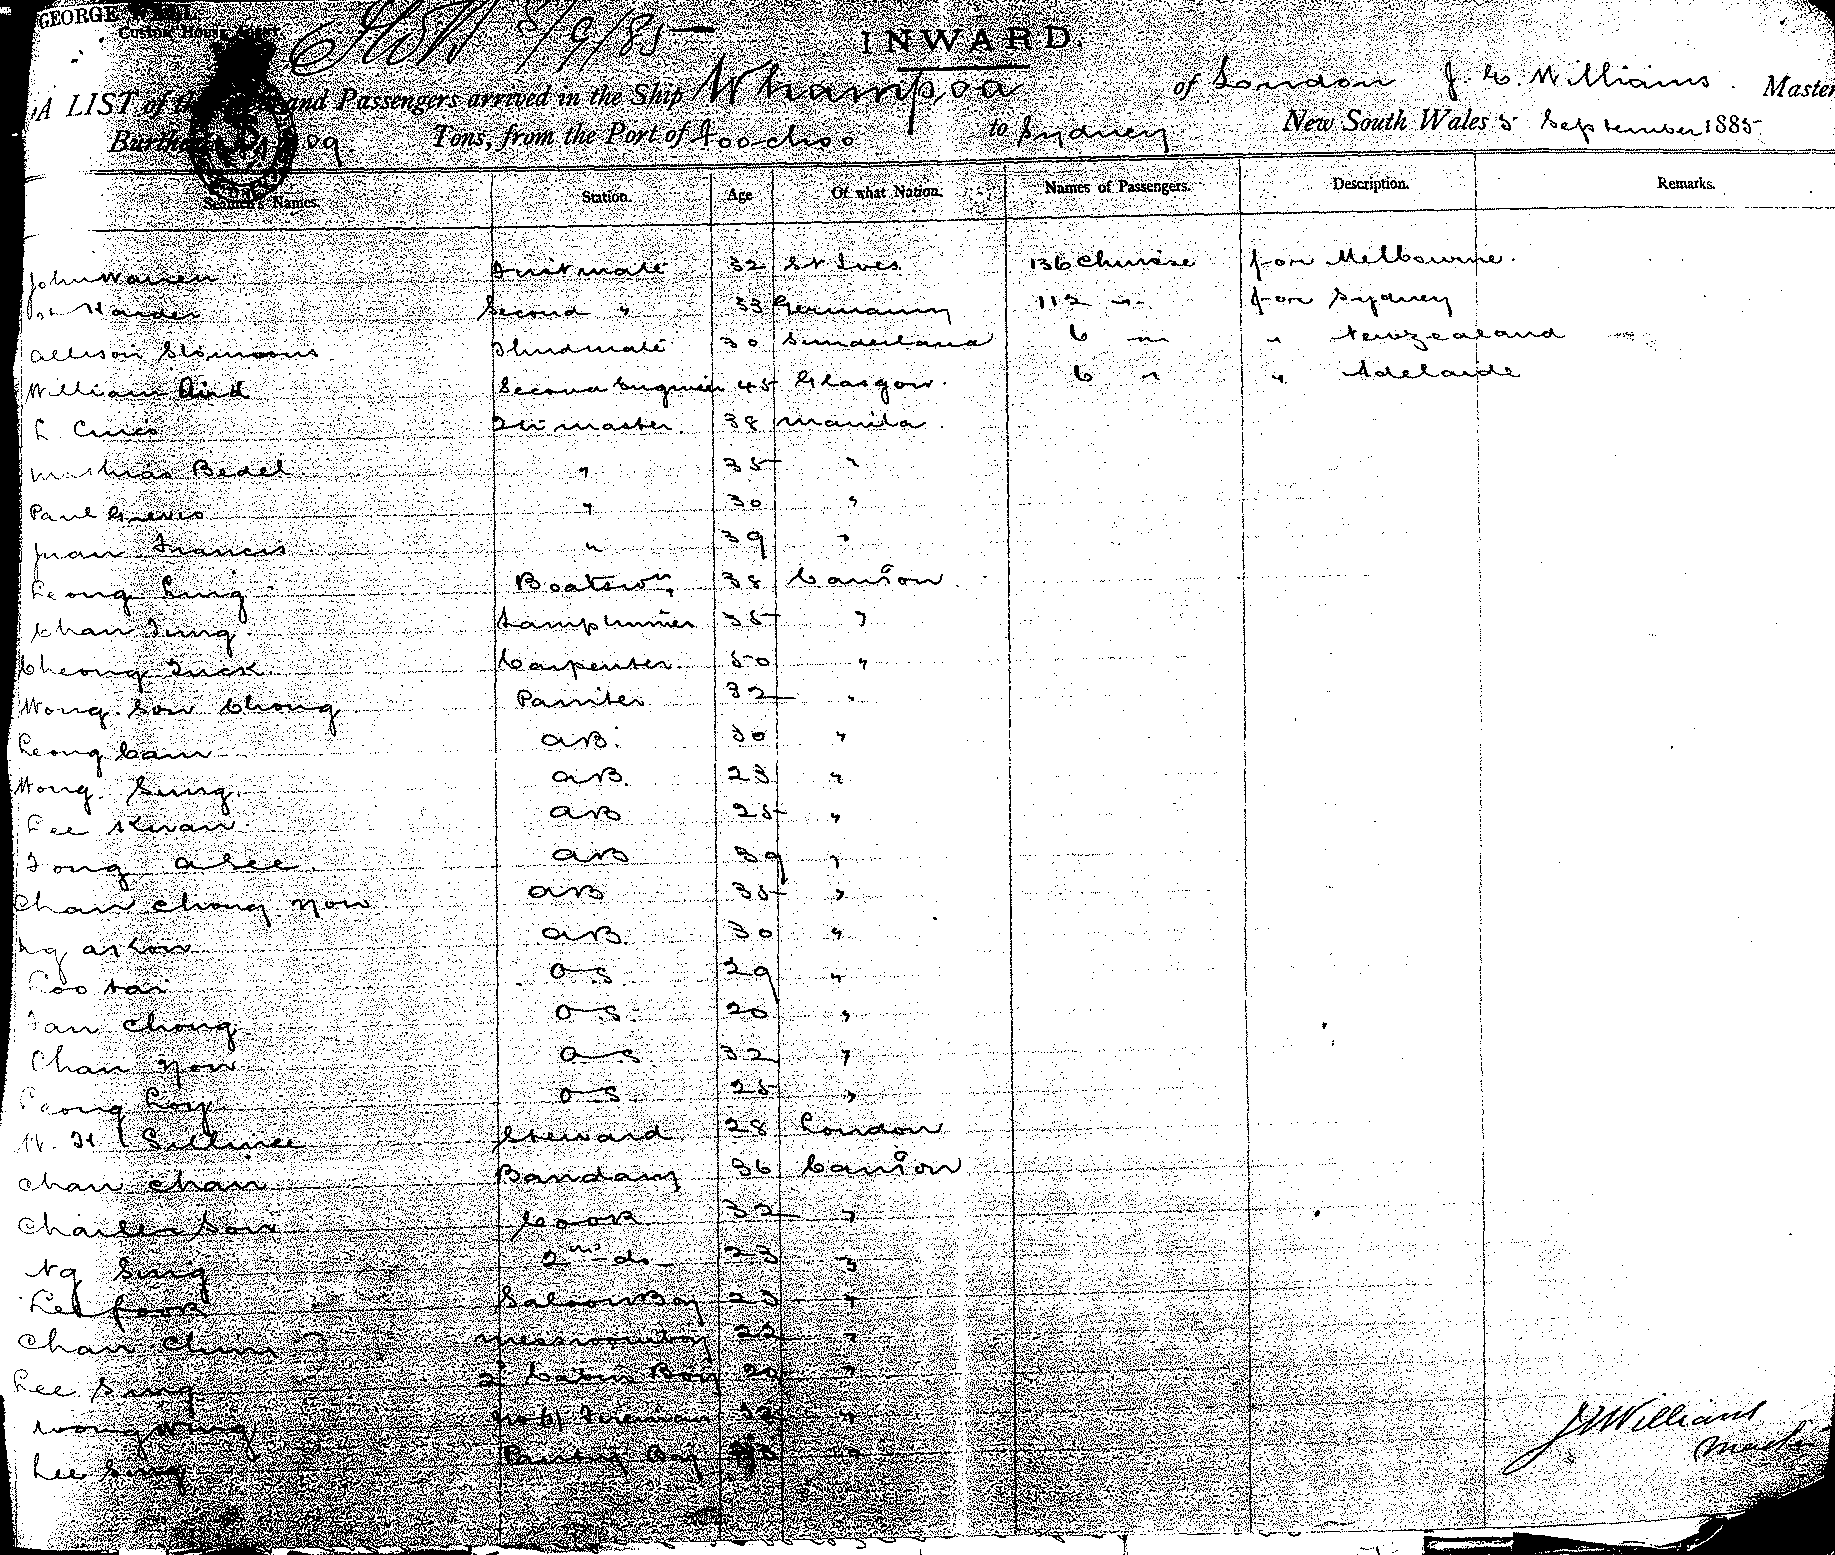 GEORGE
Custom House Agent.
5/9/85
INWARD.
A LIST of the and Passengers arrived in the Ship Whampoa of London J. Williams. Master
Burthen 09 Tons, from the Port of Foochoo to Sydney New South Wales 5 September 1885
Names. Station. Age Of what Nation. Names of Passengers. Description. Remarks.
John Warren First mate 32 St Ives 136 Chinese for Melbourne.
Harder Second " 33 Germany 112 " for Sydney
Allison Simmons Third mate 30 Sunderland 6 " " New Zealand
William Aird Second Engineer 45 Glasgow. 6 " " Adelaide
Qr master. 38 Manila
Mathias Bedel " 35 "
Paul " 30 "
Juan Francis " 39 "
Leong Ling Boatswn 38 Canton
Chan Tung Lamptrimmer 35 "
Cheong Tuck Carpenter 50 "
Wong Sow Chong Painter 32 "
Leong Cam AB. 30 "
Wong Sung AB. 23 "
Lee Kwan AB 25 "
Tong Alee AB 39 "
Chan Chong Yow AB 35 "
Ng AB. 30 "
Loo Tai OS 29 "
Chong OS 20 "
Chan Yow OS 32 "
Leong Loy OS 25 "
W. H. Steward 28 London
Chan Chan Bandary 36 Canton
Charles Cook 32 "
Ng Sing 2nd do 23 "
Lee Saloon Boy 23 "
Chan Chun Messroomboy 22 "
Lee Sing 2 Cabin Boy 20 "
Wong Wing Fireman 32 "
Lee Sing Pantry Boy "
J Williams
Master